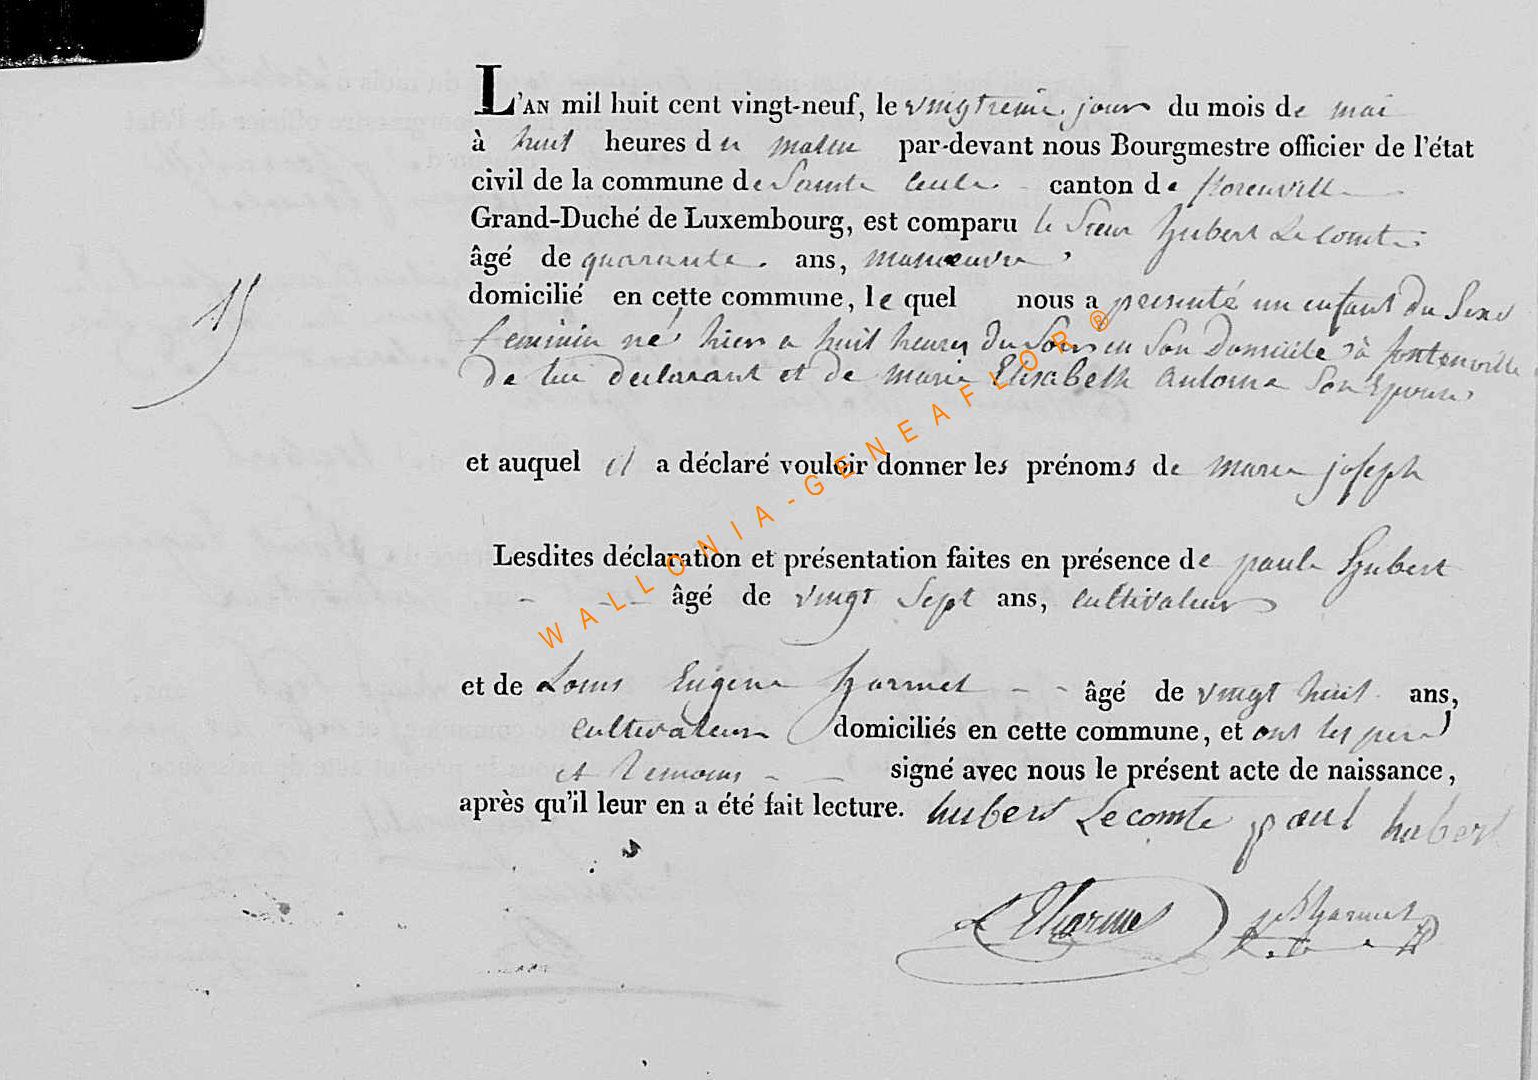 L'AN mil huit cent vingt-neuf, le jour du mois de mai
à huit heures du matin par-devant nous Bourgmestre officier de l'état
civil de la commune de Sainte Cecile canton de florenville
Grand-Duché de Luxembourg, est comparu le Sieur hubert Lecomte
âgé de quarante ans, manœuvre
domicilié en cette commune, lequel nous a presenté un enfant du Sexe
feminin né hier a huit heures du Soir en Son Domicile à fontenville
De lui declarant et de marie Elisabeth antoine Son Epouse
15
et auquel il a déclaré vouloir donner les prénoms de marie joseph
Lesdites déclaration et présentation faites en présence de paul hubert
âgé de vingt Sept ans, cultivateur
et de Louis Eugene harmel âgé de vingt huit ans,
cultivateur domiciliés en cette commune, et ont les pere
et temoins signé avec nous le présent acte de naissance,
après qu'il leur en a été fait lecture. hubert Lecomte paul hubert
WALLONIA-GENEAFLOR®